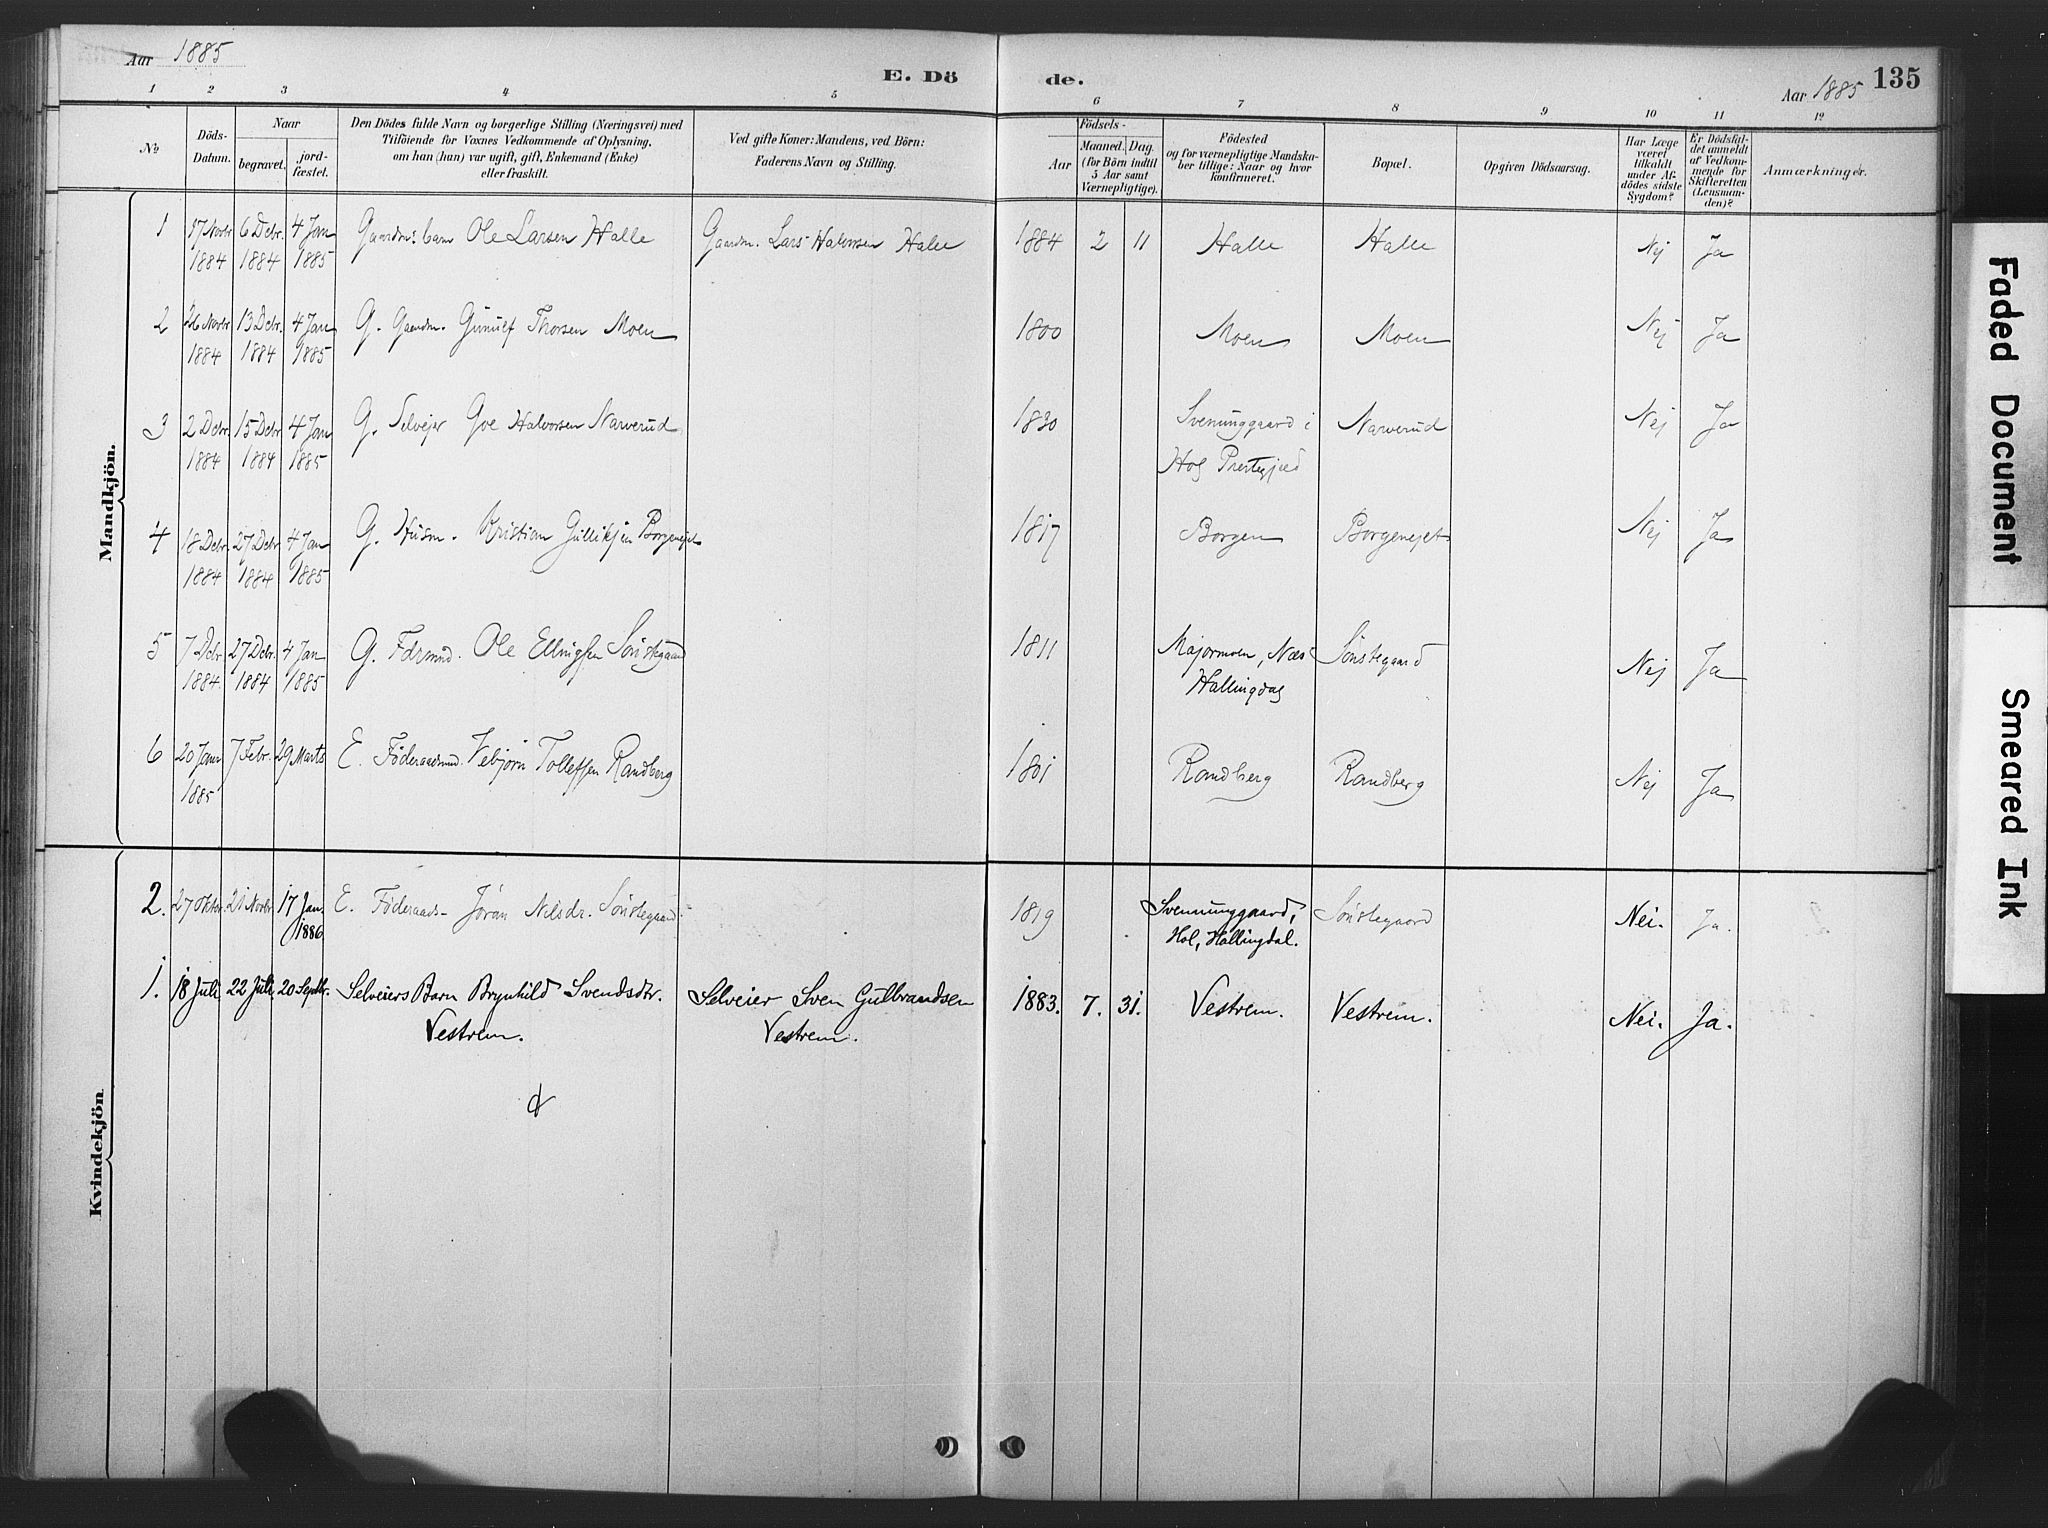 Aar 1885
E. Dö de.
Aar 1885 135
1 2 3 4 5 6 7 8 9 10 11 12
№
Döds-
Datum.
Naar
begravet.
jord-
fæstet.
Den Dödes fulde Navn og borgerlige Stilling (Næringsvei) med
Tilföiende for Voxnes Vedkommende af Oplysning,
om han (hun) var ugift, gift, Enkemand (Enke)
eller fraskilt.
Ved gifte Koner: Mandens, ved Börn:
Faderens Navn og Stilling.
Födsels-
Aar
Maaned. Dag.
(for Börn indtil
5 Aar samt
Værnepligtige).
Födested
og for værnepligtige Mandska-
ber tillige: Naar og hvor
konfirmeret.
Bopæl.
Opgiven Dödsaarsag.
Har Læge
været
tilkaldt
under Af-
dödes sidste
Sygdom?
Er Dödsfal-
det anmeldt
af Vedkom-
mende for
Skifteretten
(Lensman-
den)?
Anmærkninger.
Mandkjön.
1 17 Novbr 6 Dcbr. 4 Jan Gaardm: barn Ole Larsen Halle Gaardm. Lars Halvorsen Halle 1884 2 11 Halle Halle Nej Ja
1884 1884 1885
2 26 Novbr 13 Dcbr. 4 Jan G. Gaardm. Gunulf Thorsen Moen 1800 Moen Moen Nej Ja
1884 1884 1885
3 2 Dcbr. 15 Dcbr 4 Jan G. Selvejer Goe Halvorsen Narverud 1830 Svenunggaard i Narverud Nej Ja
1884 1884 1885 Hol Prestegjæld
4 18 Dcbr. 27 Dcbr. 4 Jan G. Husm. Kristian Gulliksen Borgenejet 1817 Borgen Borgenejet Nej Ja
1884 1884 1885
5 7 Dcbr 27 Dcbr. 4 Jan G. Fdrmnd. Ole Ellingsen Sønstegaard 1811 Majormoen, Næs Sønstegaard Nej Ja
1884. 1884 1885 Hallingdal
6 20 Janr 7 Febr. 29 Marts E. Föderaadsmd. Vebjørn Tollefsen Randberg 1801 Randberg Randberg Nej Ja
1885
Kvindekjön
2. 27 Oktbr. 21 Novbr 17 Jan. E. Föderaads- Jøran Nilsdr. Sønstegaard 1819 Svenunggaard, Sønstegaard Nei. Ja.
1886. Hol, Hallingdal.
1. 18 Juli 22 Juli 20 Septbr. Selveiers Barn Brynhild Svendsdtr. Selveier Sven Gulbrandsen 1883. 7. 31. Vestrem. Vestrem. Nei. Ja.
Vestrem. Vestrem.
Faded Document
Smeared Ink